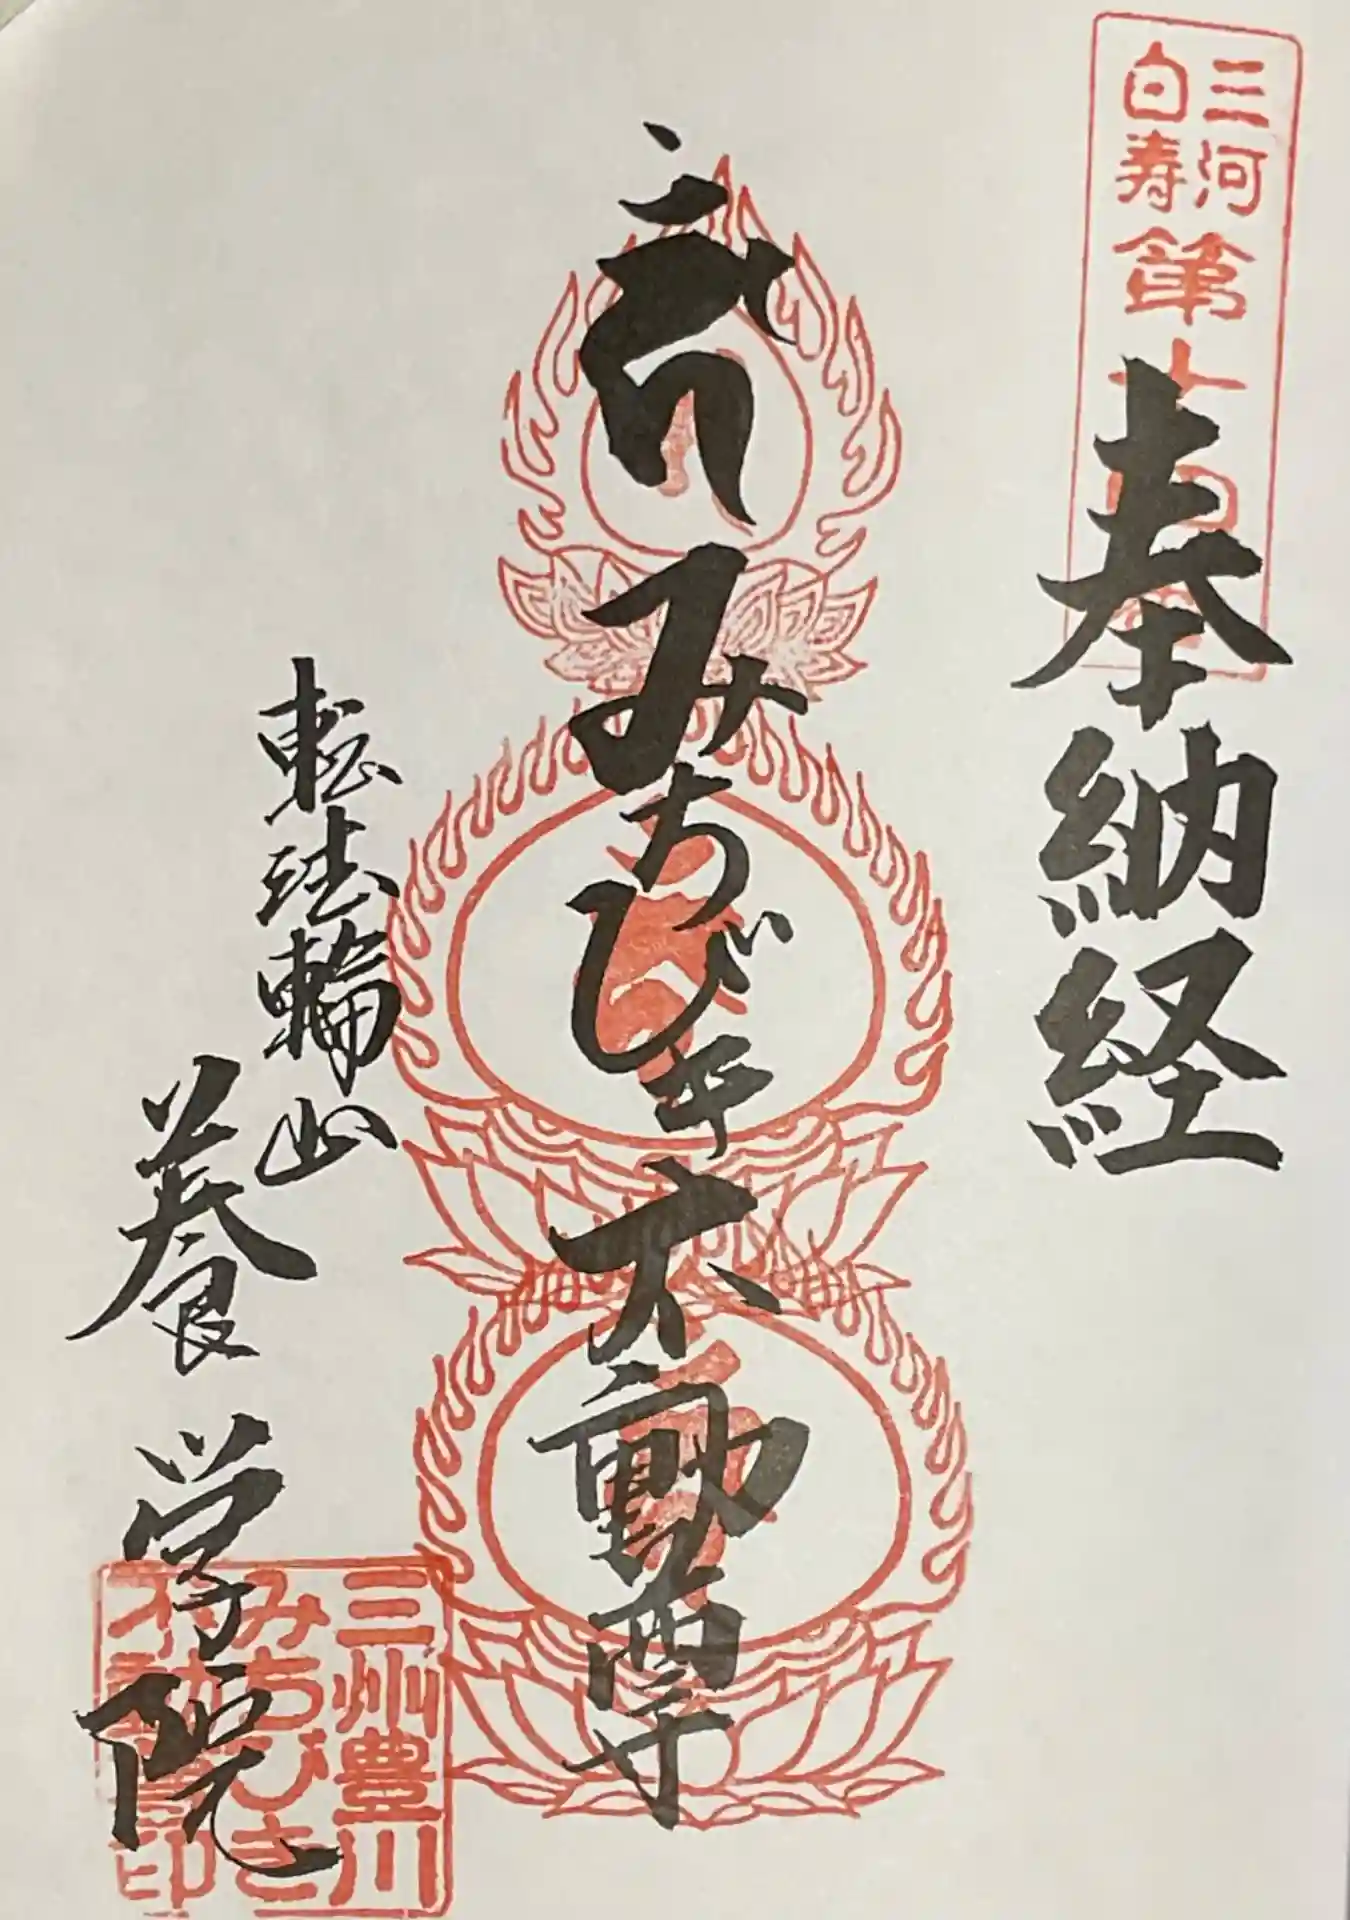 三河
白寿
第廿四番
奉納経
みちびき不動尊
転法輪山
養学院
三州豊川
みちびき
不動尊印